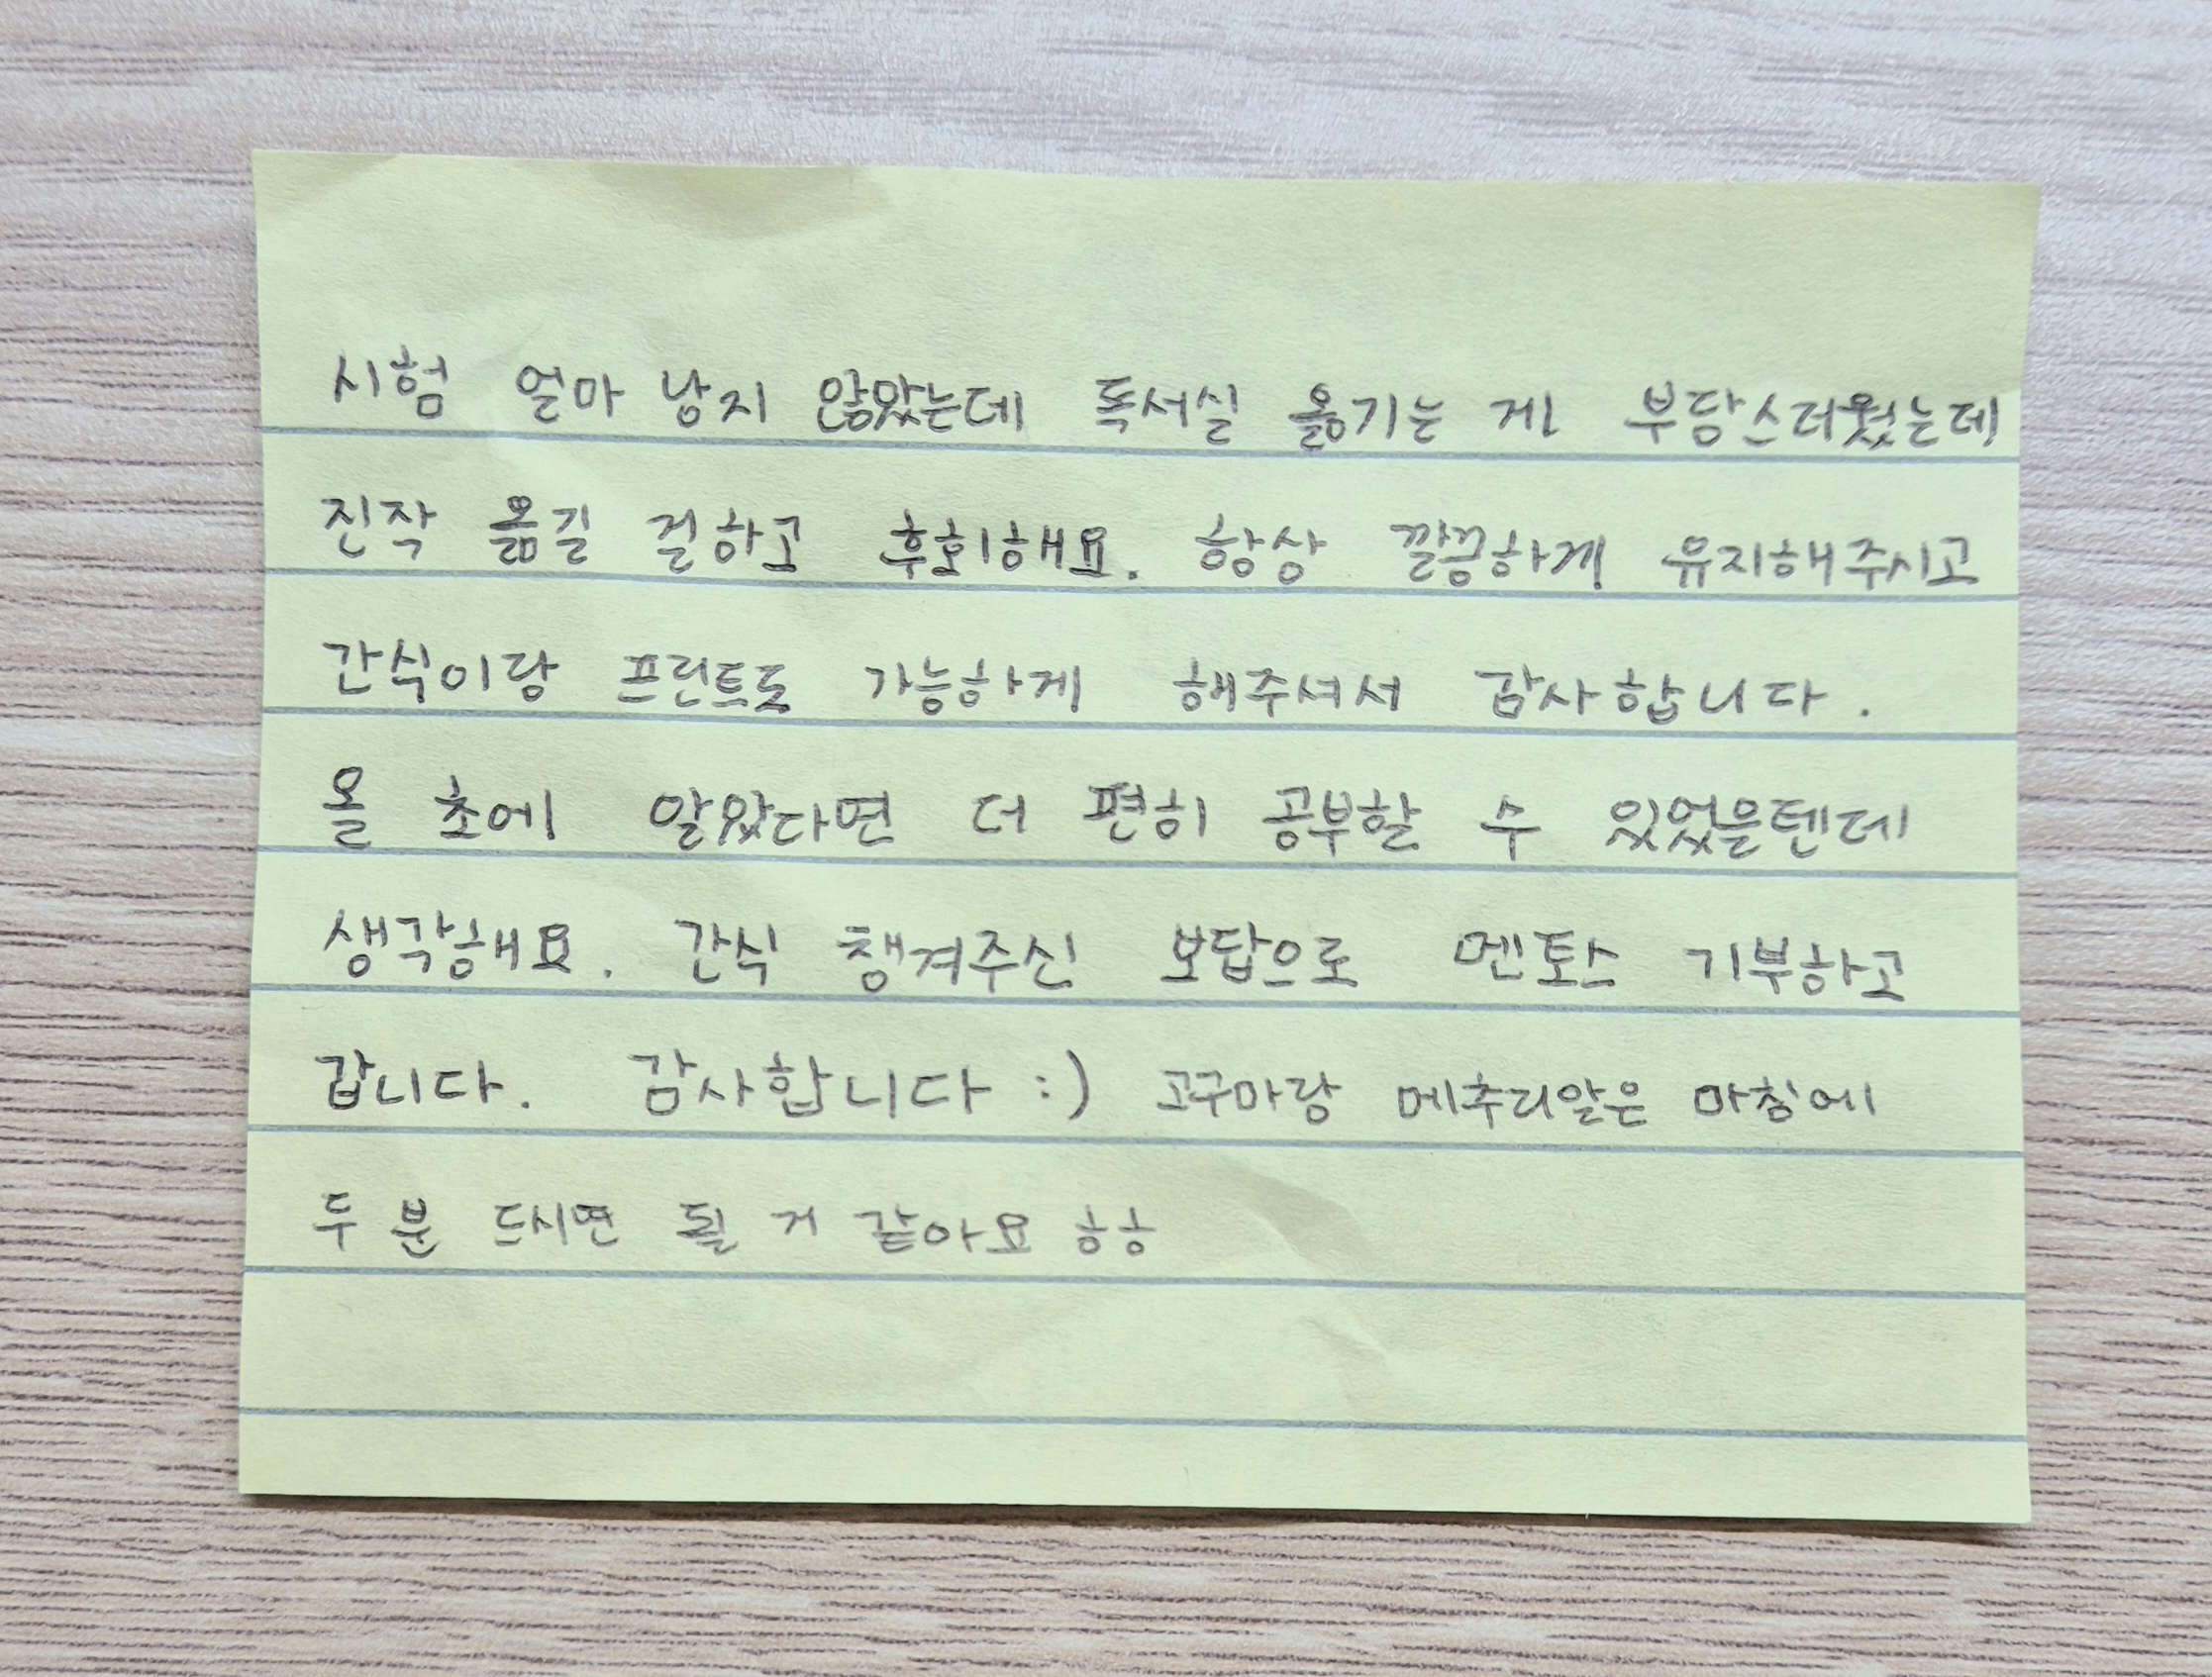 시험 얼마 남지 않았는데 독서실 옮기는 게 부담스러웠는데
진작 옮길 걸하고 후회해요. 항상 깔끔하게 유지해주시고
간식이랑 프린트도 가능하게 해주셔서 감사합니다.
올 초에 알았다면 더 편히 공부할 수 있었을텐데
생각해요. 간식 챙겨주신 보답으로 멘토스 기부하고
갑니다. 감사합니다 :) 고구마랑 메추리알은 아침에
두 분 드시면 될 거 같아요 ㅎㅎ